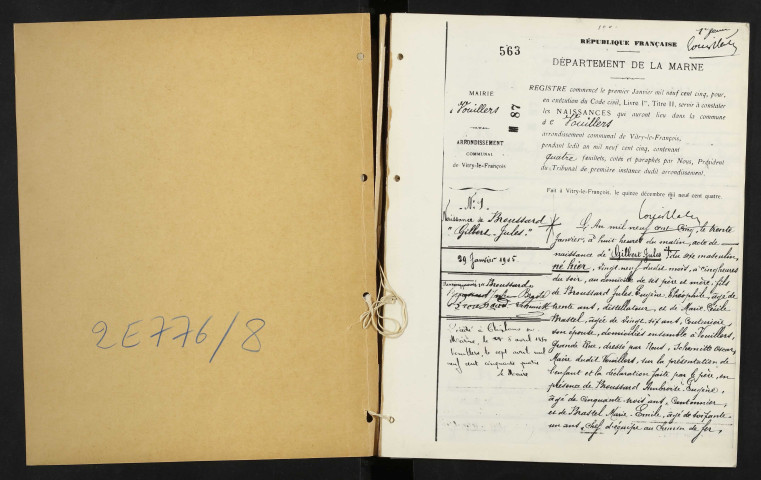 2E776/8
563
RÉPUBLIQUE FRANÇAISE
DÉPARTEMENT DE LA MARNE
MAIRIE
Vouillers
ARRONDISSEMENT
COMMUNAL
de Vitry-le-François
87
REGISTRE commencé le premier Janvier mil neuf cent cinq, pour,
en exécution du Code civil, Livre 1er, Titre II, servir à constater
les NAISSANCES qui auront lieu dans la commune
de Vouillers
arrondissement communal de Vitry-le-François,
pendant ledit an mil neuf cent cinq, contenant
quatre feuillets, cotés et paraphés par Nous, Président
du Tribunal de première instance dudit arrondissement.
Fait à Vitry-le-François, le quinze décembre mil neuf cent quatre.
N° 1
Naissance de Broussard
"Gilbert-Jules"
29 Janvier 1905
Décédé à Châlons sur
Marne, le 5 avril 1954
Vouillers, le sept avril mil
neuf cent cinquante quatre
le Maire
L'An mil neuf cent cinq, le trente
Janvier, à huit heures du matin, acte de
naissance de Gilbert Jules du sexe masculin,
né hier, vingt neuf dudit mois, à cinq heures
du soir, au domicile de ses père et mère, fils
de Broussard Jules Eugène Théophile, âgé de
trente ans, distillateur, et de Marie Emile
Brastel, âgée de vingt six ans, couturière,
son épouse, domiciliés ensemble à Vouillers,
Grande Rue, dressé par Nous, Schmitt Oscar,
Maire dudit Vouillers, sur la présentation de
l'enfant et la déclaration faite par le père, en
présence de Broussard Ambroise Eugène,
âgé de cinquante trois ans, Cantonnier,
et de Brastel Marie Emile, âgé de soixante
un ans, chef d'équipe au Chemin de fer,